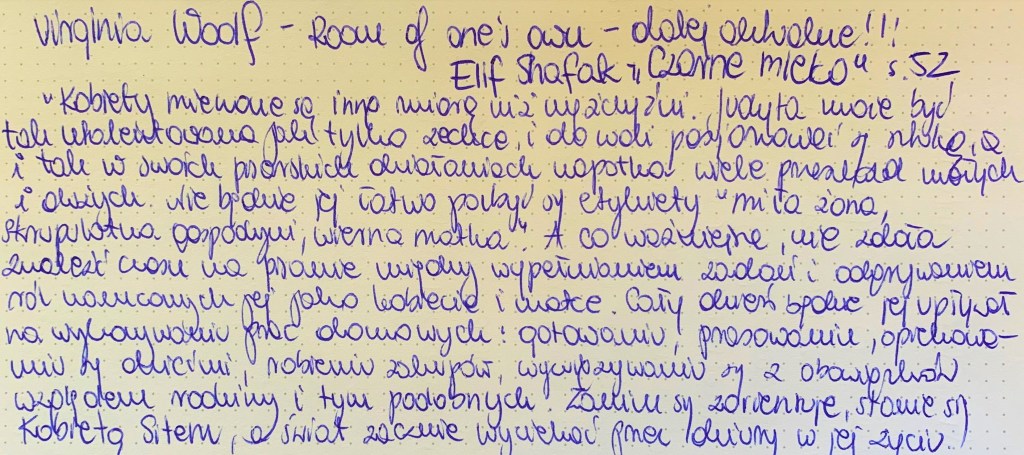 Virginia Woolf - Room of one's own - dalej aktualne!!!
Elif Shafak "Czarne mleko" s. 52
"Kobiety mierzone są inną miarą niż mężczyźni. Judyta może być
tak utalentowana jak tylko zechce, i do woli pasjonować się sztuką, a
i tak w swoich pisarskich działaniach napotka wiele przeszkód małych
i dużych. Nie będzie jej łatwo pozbyć się etykiety "miła żona,
skrupulatna gospodyni, wierna matka". A co ważniejsze, nie zdoła
znaleźć czasu na pisanie między wypełnianiem zadań i odgrywaniem
ról narzuconych jej jako kobiecie i matce. Cały dzień będzie jej upływał
na wykonywaniu prac domowych: gotowaniu, prasowaniu, opiekowa-
niu się dziećmi, robieniu zakupów, wywiązywaniu się z obowiązków
względem rodziny i tym podobnych. Zanim się zorientuje, stanie się
Kobietą Sitem, a świat zacznie wyciekać przez dziury w jej życiu.